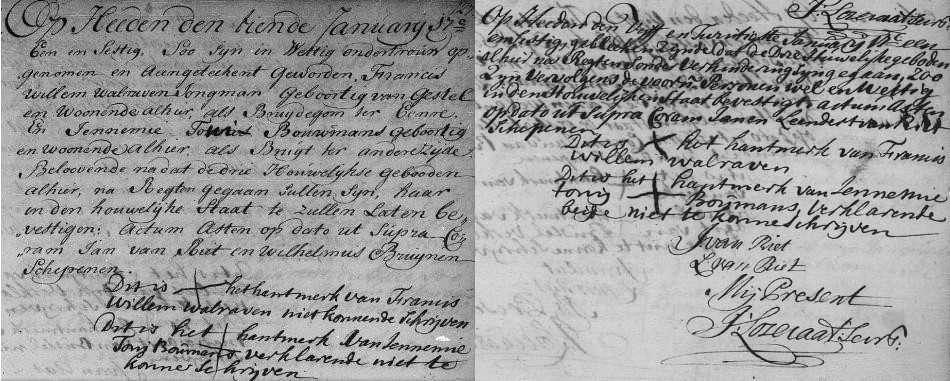 Op Heeden den tiende January 17c
Een en Sestig, Soo Syn in Wettig ondertrouw op
genomen en Aengeteekent Geworden, Francis
Willem Walraven Jongman Geboortig van Gestel
en Woonende alhier, als Bruydegom ter Eenre.
En Jennemie Bouwmans geboortig
en woonende alhier, als Bruyt ter andere Zijde
Beloovende nadat de drie Houwelijkse gebooden
alhier, na Regten gegaan Sullen Syn, haar
in den houwelijke Staat te zullen Laten be„
vestigen: Actum Asten op dato ut Supra Co„
ram Jan van Riet en Wilhelmus Bruynen
Schepenen.
Dit is + het hantmerk van Francis
Willem walraven niet konnende Schrijven
Dit is het + hantmerk van Jennemie
Tonij Boumans verklarende niet te
konne schrijven
J. Lozecaat Secrs.
Op Heeden den Vyff en Twintigste January 17c een
en sestig, gebleeken zynde dat de Drie Houwelijke geboden
alhier na Regten Sonder Verhinderingh zyn gegaan, Zoo
Zyn Vervolgens de voorn. Persoonen Wel en Wettig
in den Houwelijken Staat bevestigt, actum Asten
op dato ut Supra Coram Jan en Leendert van Riet
Schepenen
Dit is + het hantmerk van Francis
Willem walraven
Dit is het + hantmerk van Jennemie
tonij Boijmans, verklarende
beide niet te konne schrijven
J van Riet
L van Riet
Mij Present
J. Lozecaat Secrs.